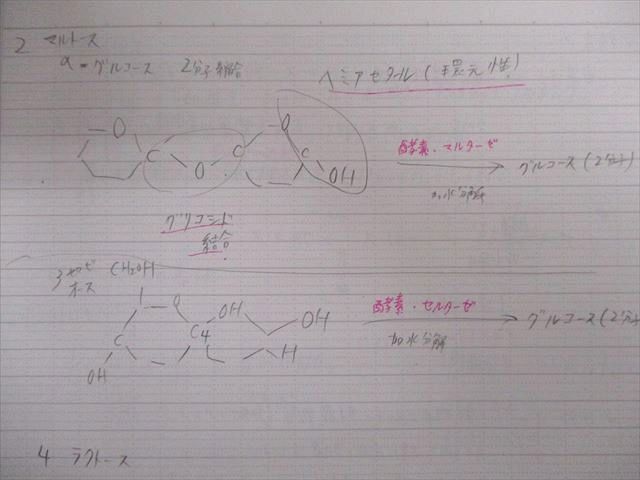 2 マルトース
α-グルコース 2分子縮合
ヘミアセタール(還元性)
O C O C O C OH
酵素・マルターゼ
加水分解
グルコース(2分子)
グリコシド
結合
3 セロビ
オース
CH2OH
O OH OH
C C4 H
OH
酵素・セルターゼ
加水分解
グルコース(2分子)
4 ラクトース